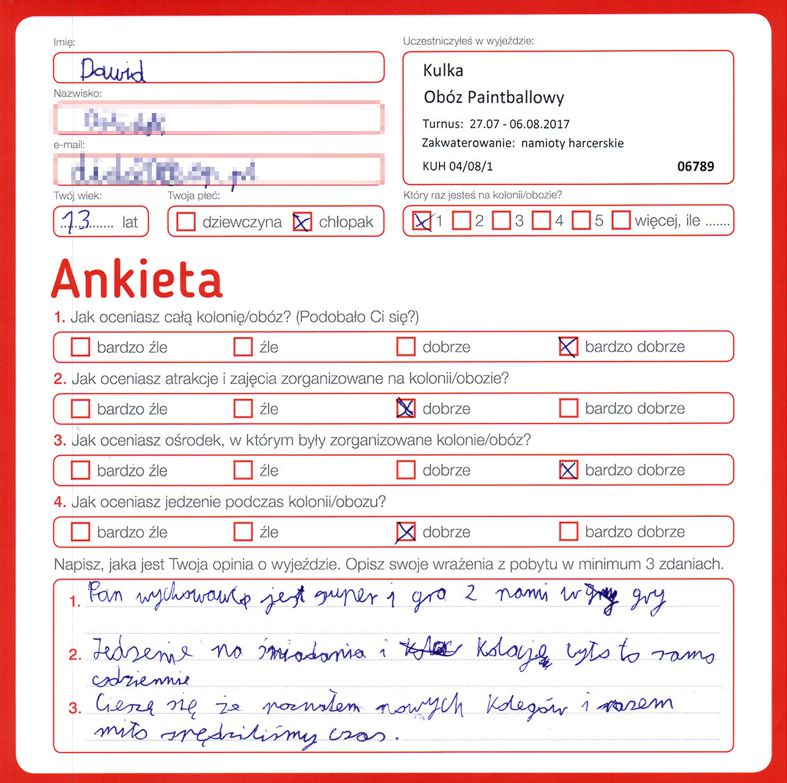 Imię:
Dawid
Nazwisko:
e-mail:
Twój wiek:
13 lat
Twoja płeć:
dziewczyna chłopak
Uczestniczyłeś w wyjeździe:
Kulka
Obóz Paintballowy
Turnus: 27.07 - 06.08.2017
Zakwaterowanie: namioty harcerskie
KUH 04/08/1 06789
Który raz jesteś na kolonii/obozie?
1 2 3 4 5 więcej, ile .......
Ankieta
1. Jak oceniasz całą kolonię/obóz? (Podobało Ci się?)
bardzo źle źle dobrze bardzo dobrze
2. Jak oceniasz atrakcje i zajęcia zorganizowane na kolonii/obozie?
bardzo źle źle dobrze bardzo dobrze
3. Jak oceniasz ośrodek, w którym były zorganizowane kolonie/obóz?
bardzo źle źle dobrze bardzo dobrze
4. Jak oceniasz jedzenie podczas kolonii/obozu?
bardzo źle źle dobrze bardzo dobrze
Napisz, jaka jest Twoja opinia o wyjeździe. Opisz swoje wrażenia z pobytu w minimum 3 zdaniach.
1. Pan wychowawca jest super i gra z nami w gry
2. Jedzenie na śniadania i kolaję było to samo
codziennie
3. Cieszę się że poznałem nowych kolegów i razem
miło spędziliśmy czas.